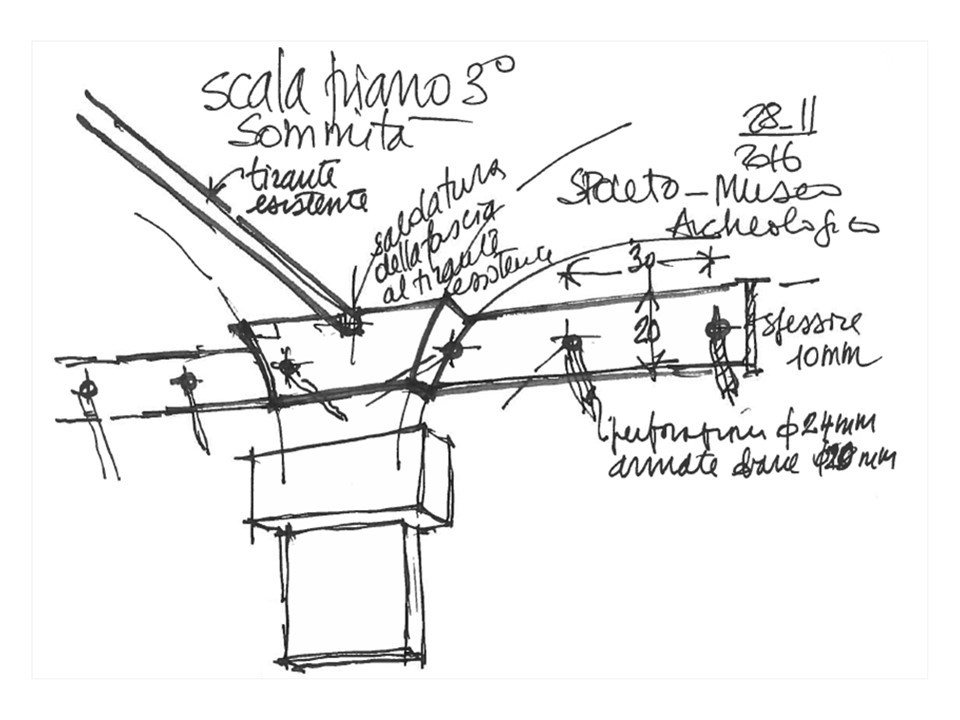 scala piano 3°
sommità
28-11
2016
tirante
esistente
Spoleto - Museo
Archeologico
saldatura
della fascia
al tirante
esistente
30
20
spessore
10mm
perforazioni ϕ24mm
armate barre ϕ20 mm